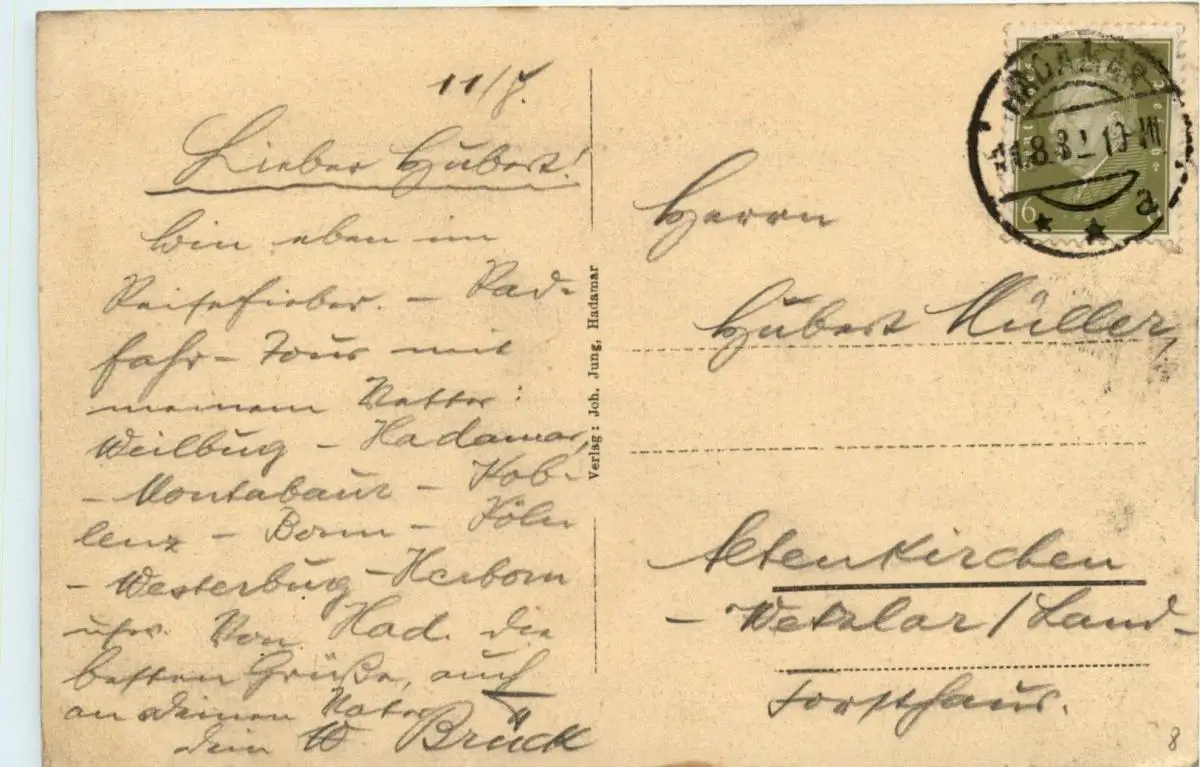 11/8.
Lieber Hubert!
bin eben im
Reisefieber. – Rad-
fahr-Tour mit
meinem Vetter:
Weilbug – Hadamar,
– Montabaur – Kob-
lenz – Bonn – Köln
– Westerbug – Herborn
usw. Von Had. die
besten Grüße, auch
an deinen Vater
dein W. Brück
Verlag: Joh. Jung, Hadamar
HADAMAR
11.8.3
a
6
Herrn
Hubert Müller,
Altenkirchen
– Wetzlar / Land –
Forsthaus.
8